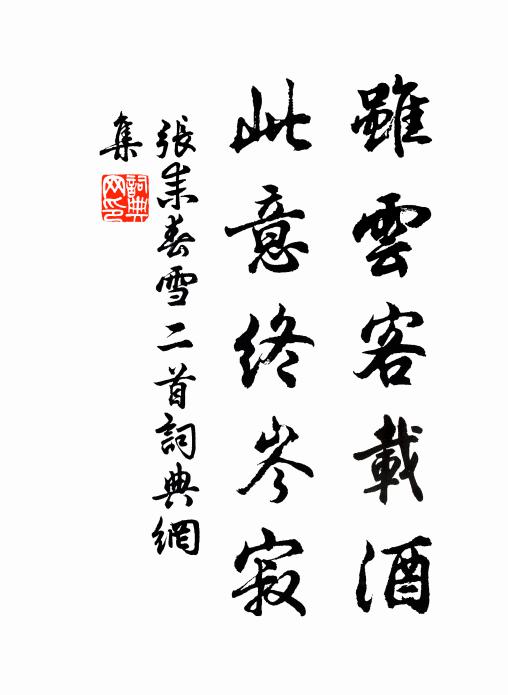 雖雲客載酒
此意終岑寂
張耒春雪二首詞典網
集
詞典
网印